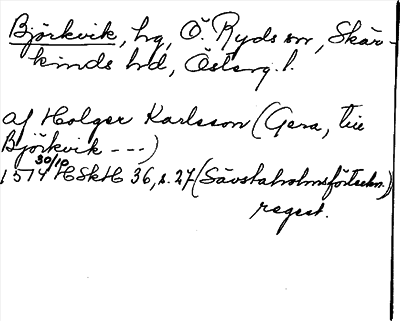 Björkvik, hg, Ö. Ryds sn, Skär-
kinds hd, Österg. l.
af Holger Karlsson (Gera, till
Björkvik ---)
1574 30/10 HSkH 36, s. 27 (Sävstaholmsförteckn.)
regest.